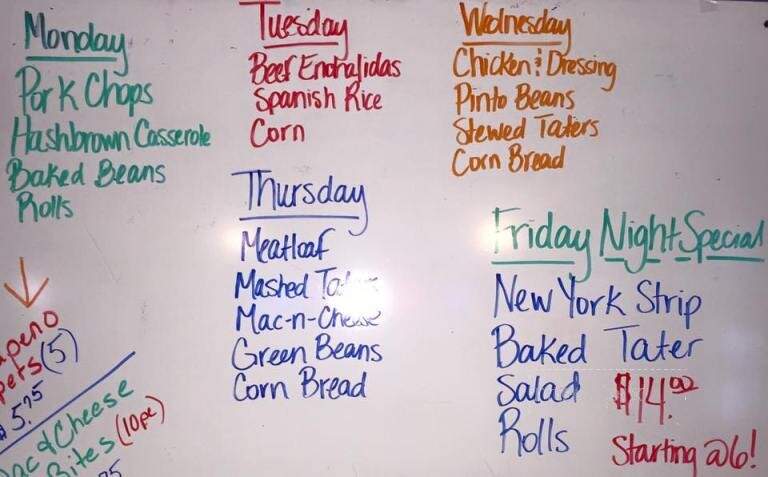 Monday
Pork Chops
Hashbrown Casserole
Baked Beans
Rolls
Tuesday
Beef Enchalidas
Spanish Rice
Corn
Wednesday
Chicken & Dressing
Pinto Beans
Stewed Taters
Corn Bread
Thursday
Meatloaf
Mashed
Mac-n-Cheese
Green Beans
Corn Bread
Friday Night Special
New York Strip
Baked Tater
Salad $14.00
Rolls Starting @6!
(5)
$5.75
& Cheese
Bites (10pc)